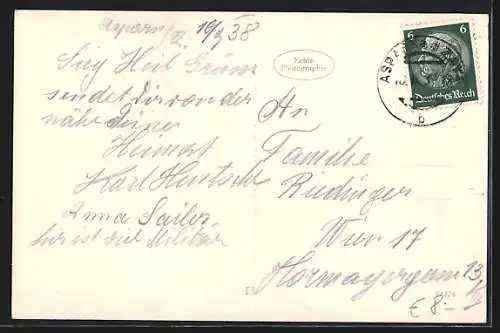 Asparn a/Z 19/V 38
Sieg Heil Grüsse
sendet dir von der
nähe deiner
Heimat
Karl Hentschl
Anna Sailer
hir ist viel Militär
Echte
Photographie
An
Familie
Riedinger
Wien 17
Hormayergasse 13
6 6
Deutsches Reich
ASPARN
b
€ 8.-